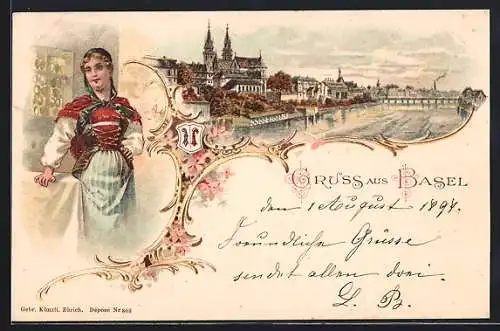 GRUSS AUS BASEL
den 1 August 1897.
Freundliche Grüsse
sendet allen drei.
L. B.
Gebr. Künzli, Zürich. Déposé Nr 803